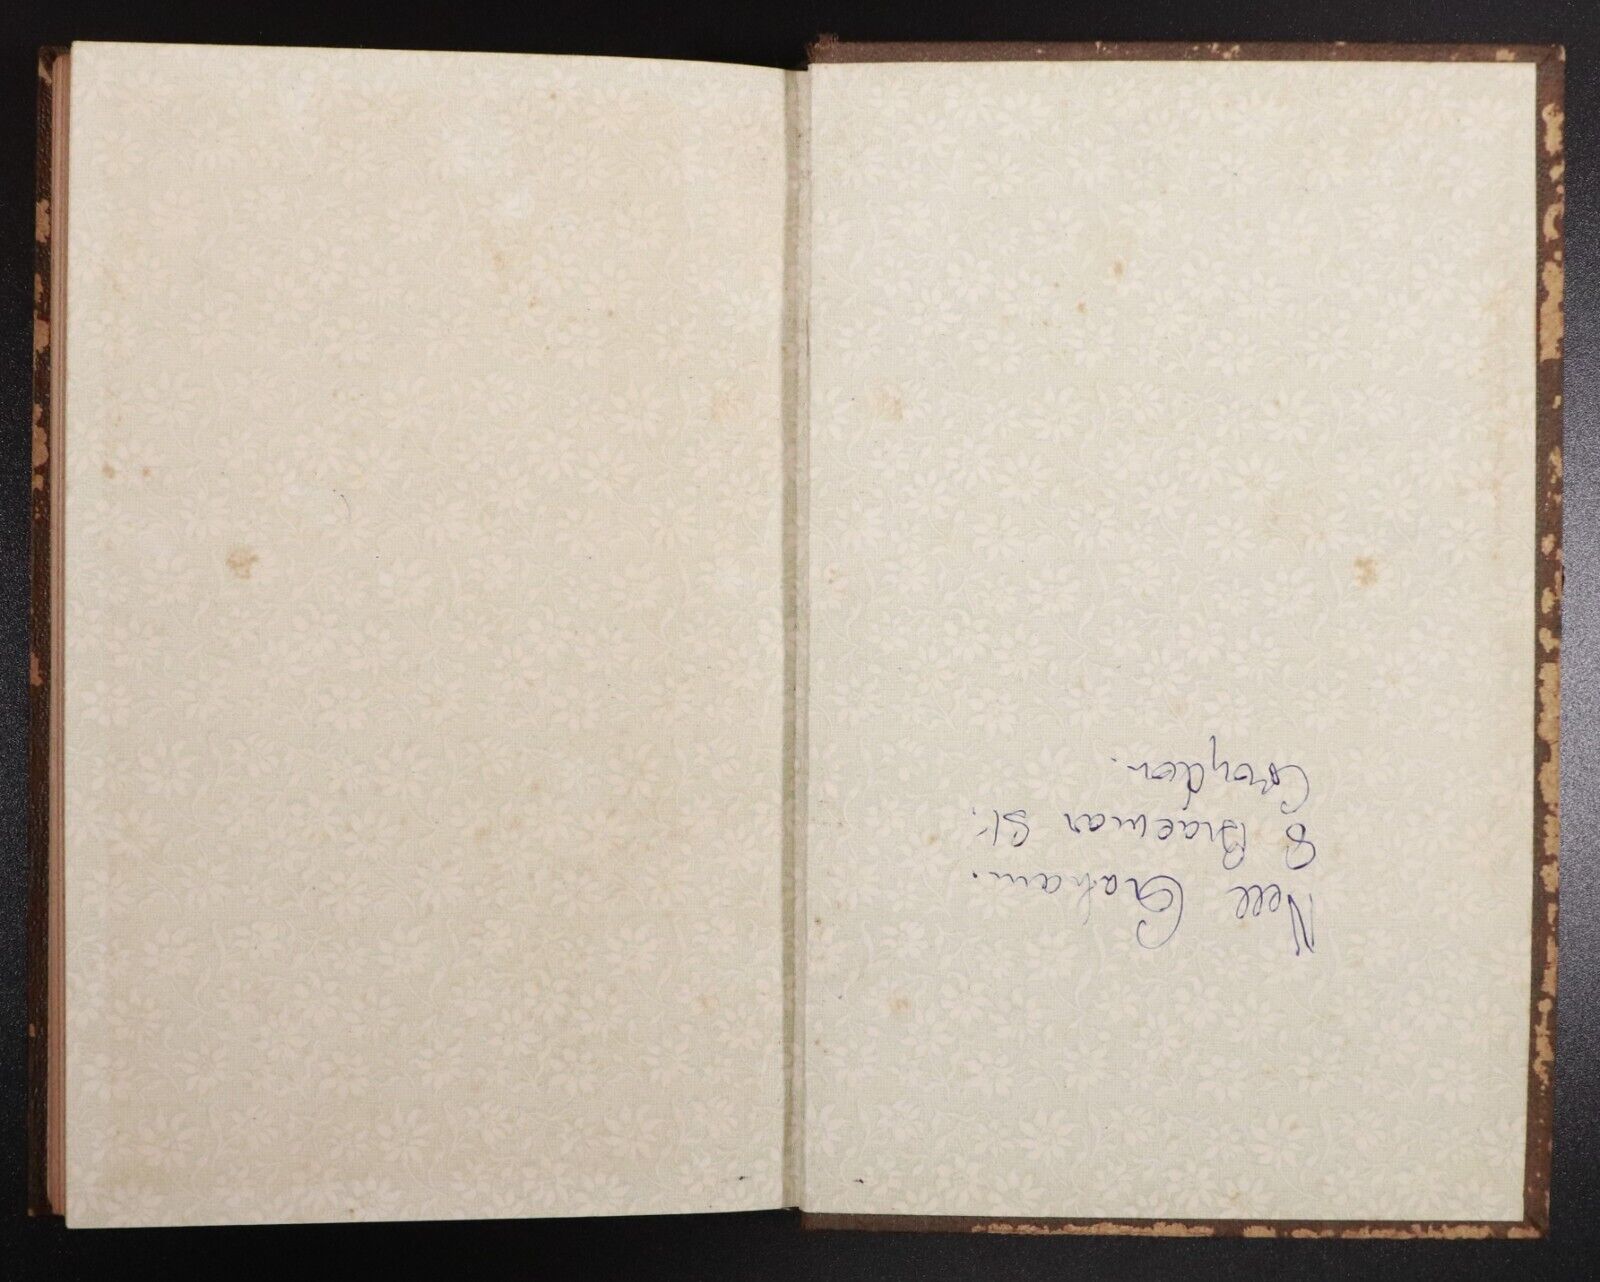 Nell Graham.
8 Braemar St.
Croydon.